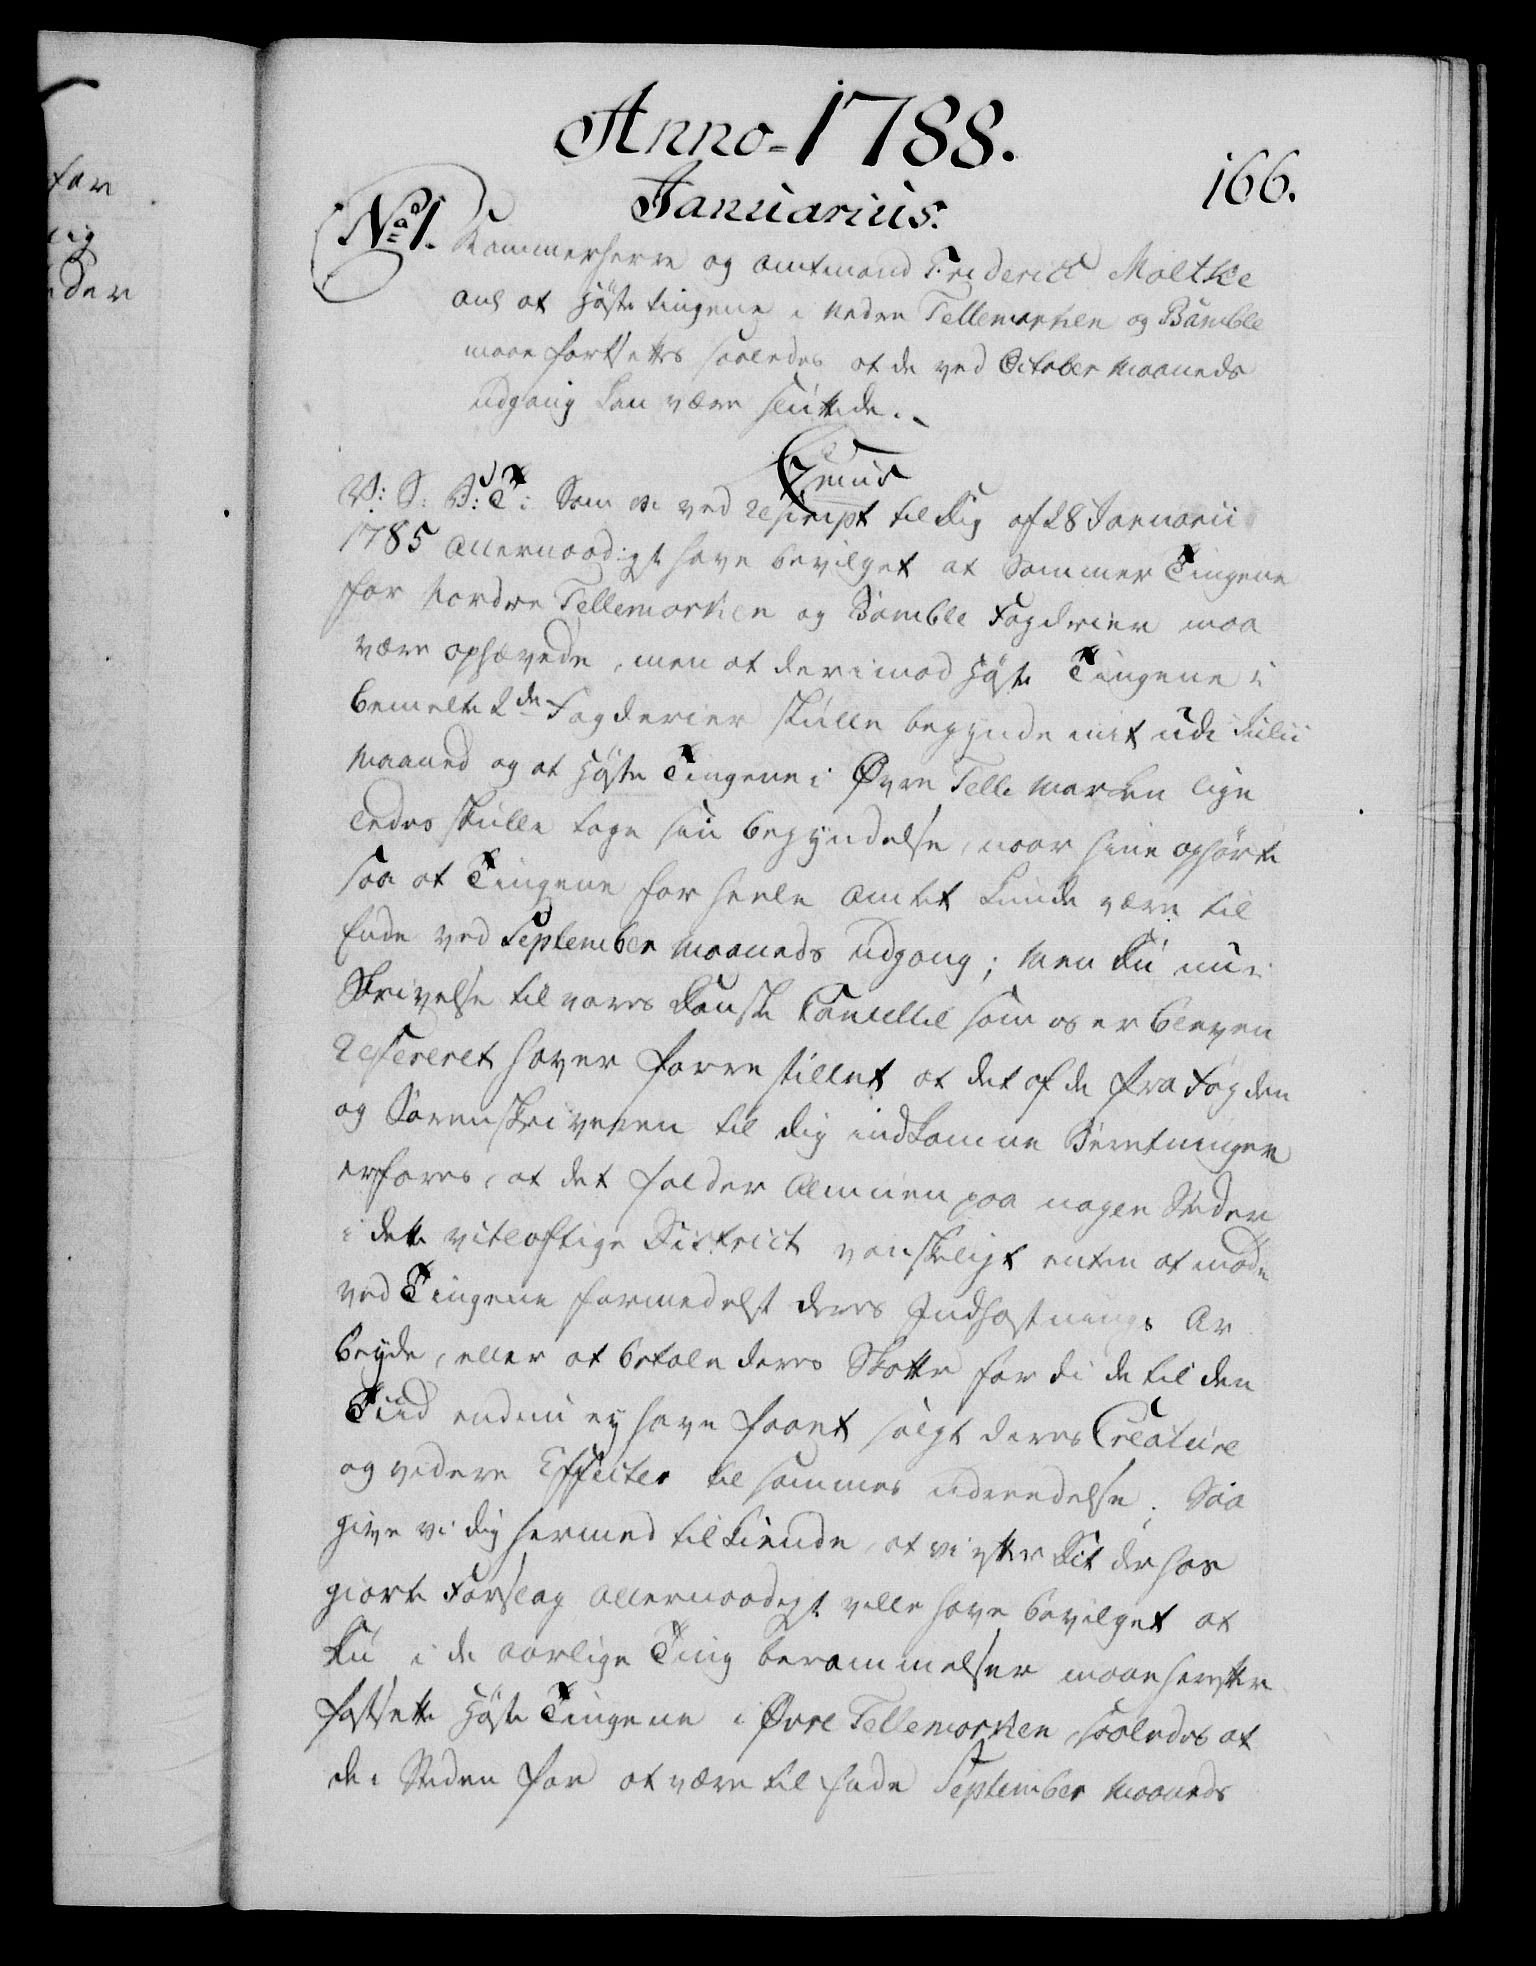 Anno 1788.
166.
Januarius.
No 1.
Kammerherre og Amtmand Friderich Moltke
anl at Høste Tingene i Nedre Tellemarken og Bamble
maae fortsettes saaledes at de ved October Maaneds
udgang kan være sluttede.
V: S: B: T: Som vi ved Rescript til dig af 28 Januarii
1785 Allernaadigst have bevilget at Sommer Tingene
for Nordre Tellemarken og Bamble Fogderier maa
være ophævede, men at derimod Høste Tingene i
bemelte 2de Fogderier skulle begynde midt udi Julii
Maaned og at Høste Tingene i Øvre Tellemarken lige
ledes skulle tage sin begyndelse, naar hine ophørte
saa at Tingene for heele Amtet kunde være til
Ende ved September Maaneds udgang; Men Du nu i
Skrivelse til vores Danske Cancellie som os er bleven
refereret haver forrestillet at det af de fra Fogden
og Sorenskriveren til dig indkomne Beretninger
erfares, at det falder Almuen paa nogen Steder
i dette vitløftige District vanskeligt enten at møde
ved Tingene formedelst deres Indhøstnings Ar
beyde, eller at betale deres Skatter fordi de til den
Tiid endnu ey have faaet solgt deres Creature
og videre Effecter til sammes udreedelse; Saa
give vi dig hermed tilkiende, at vi efter Dit derhos
giorte Forslag allernaadigst ville have bevilget at
Du i de aarlige Ting berammelser maae herefter
fastsette Høste Tingene i Øvre Tellemarken saaledes at
de i Steden for at være til Ende September Maaneds